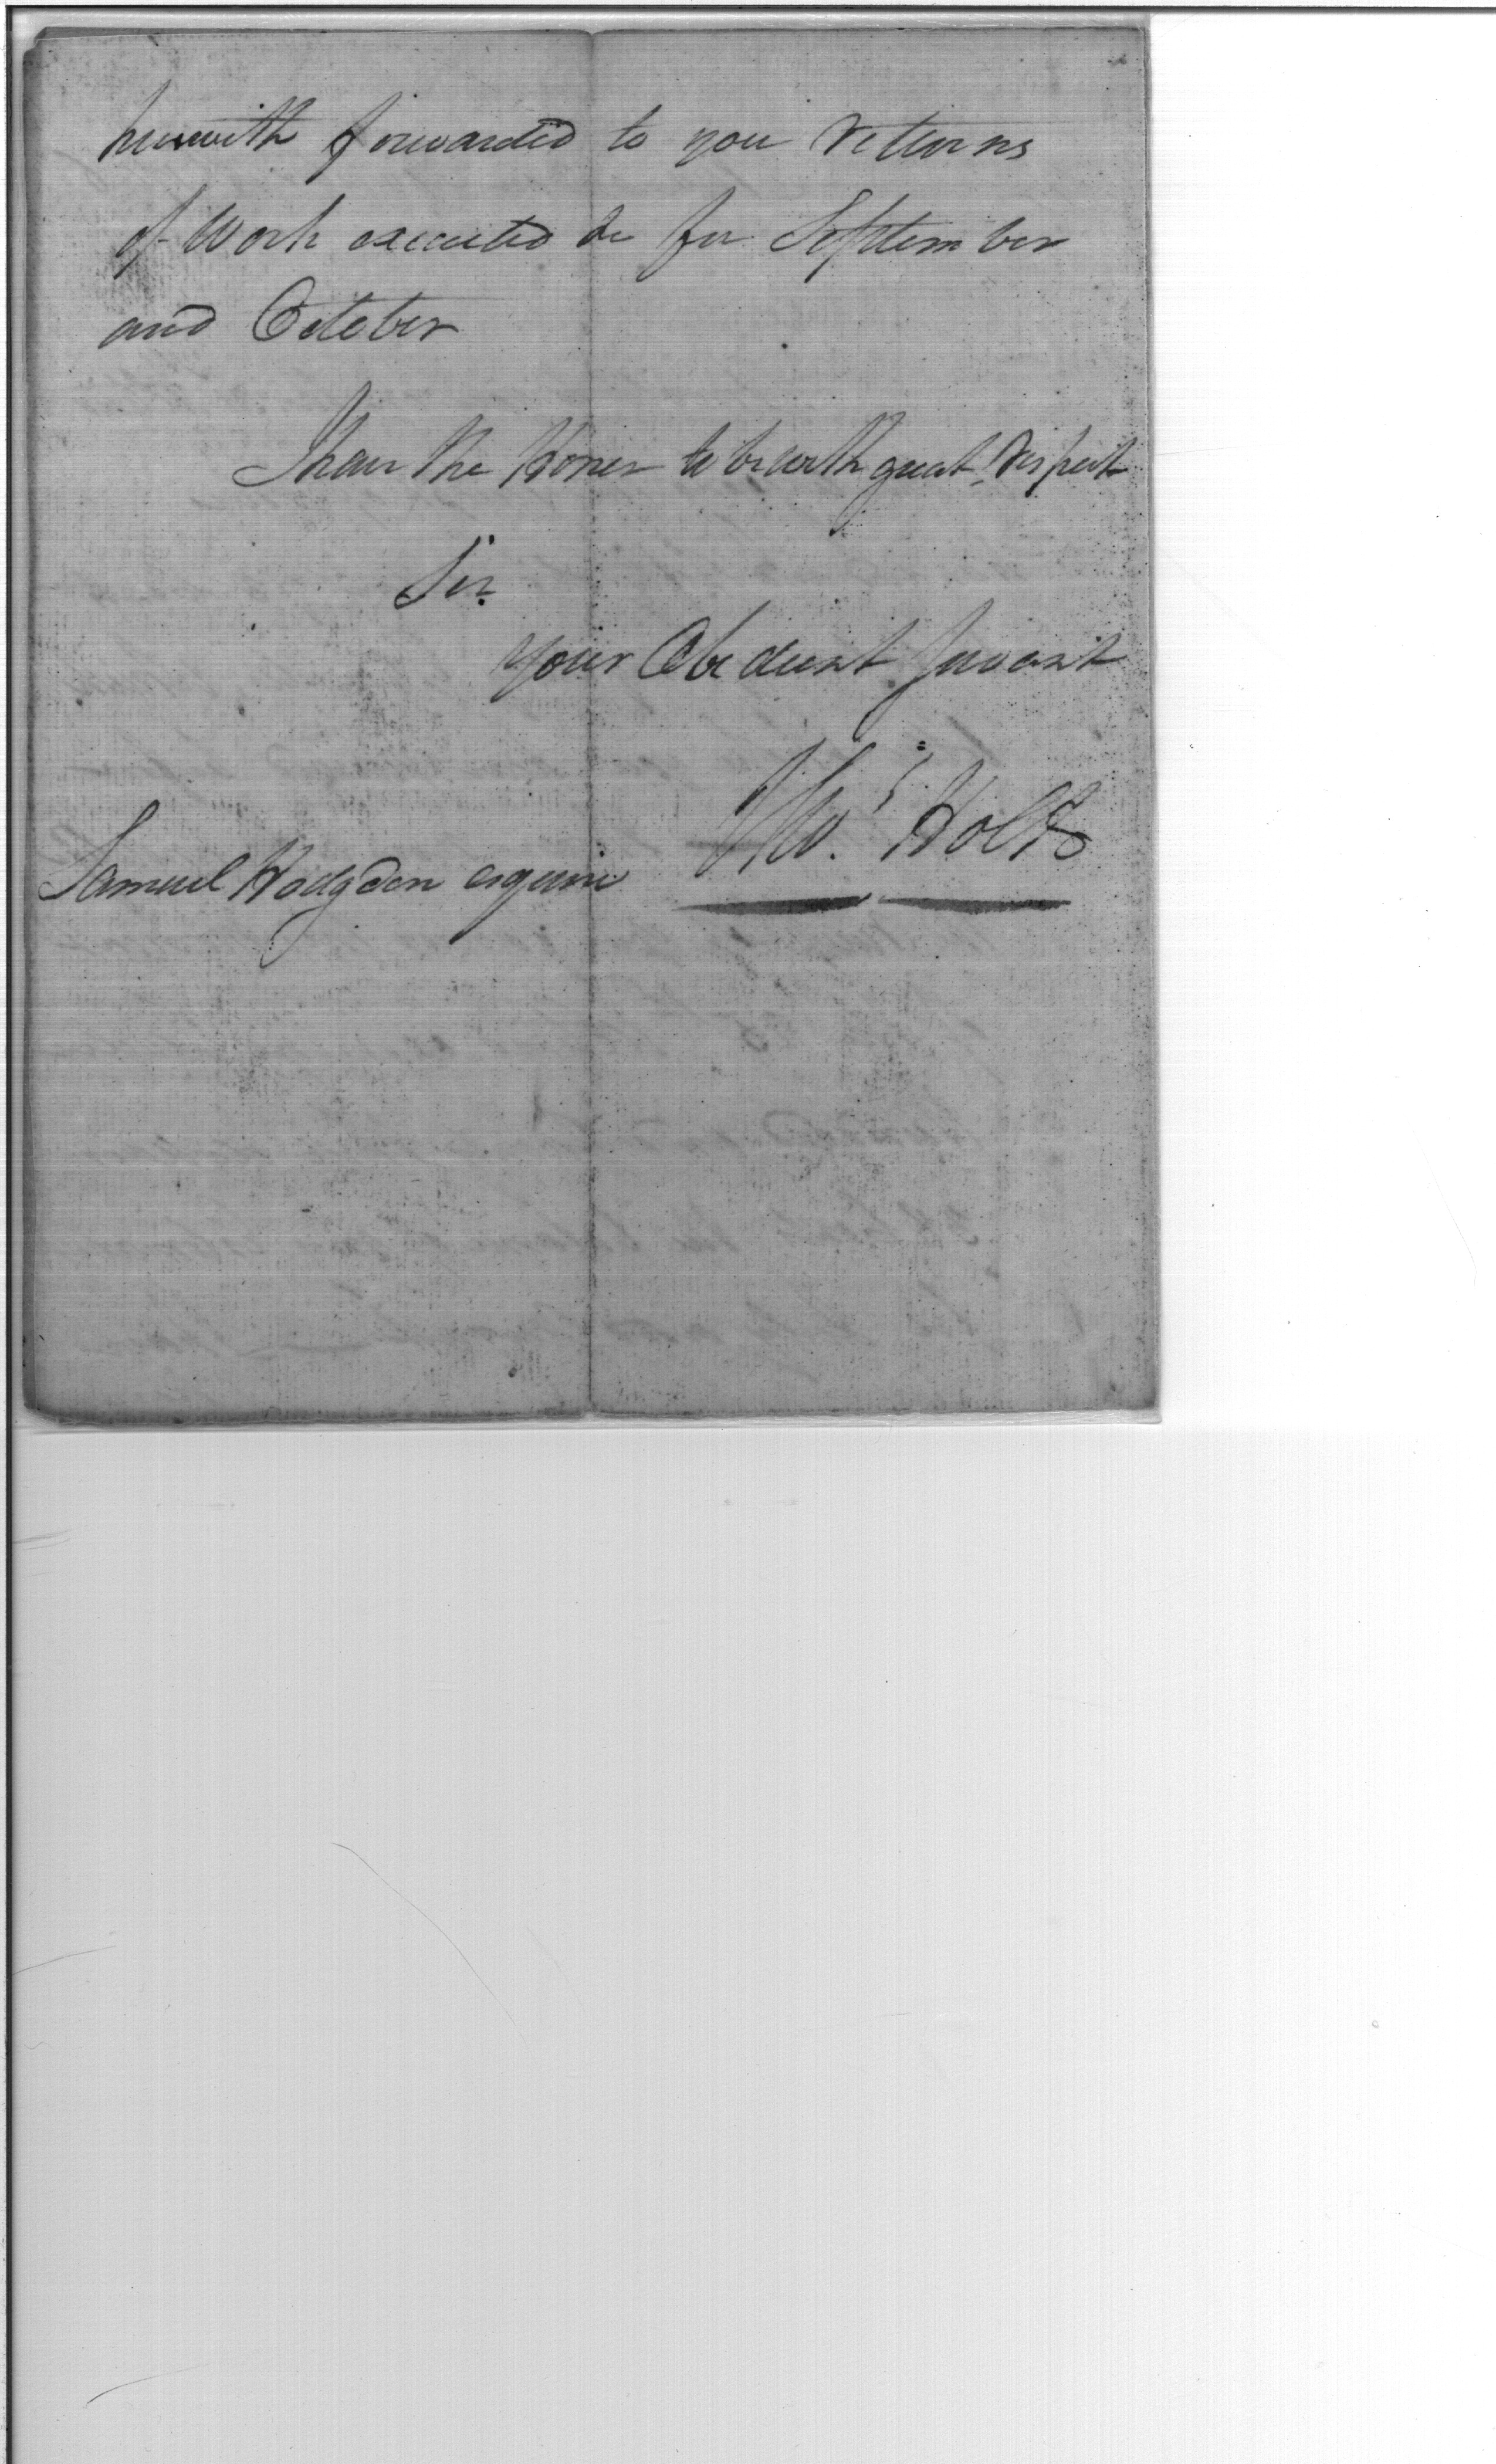 herewith forwarded to you returns
of Work executed &c for September
and October
I have the Honor to be with great Respect
Sir
your Obedient Servant
Tho.s Holt
Samuel Hodgdon esquire